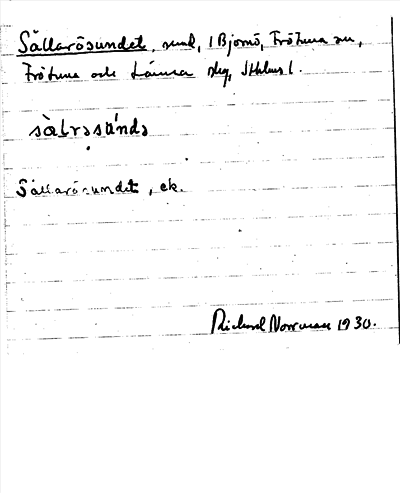 Sållarösundet, sund, i Björnö, Frötuna sn,
Frötuna och Länna slg, Sthlms l.
sålrəsúndə
Sållarösundet, ek.
Rickard Norrman 1930.